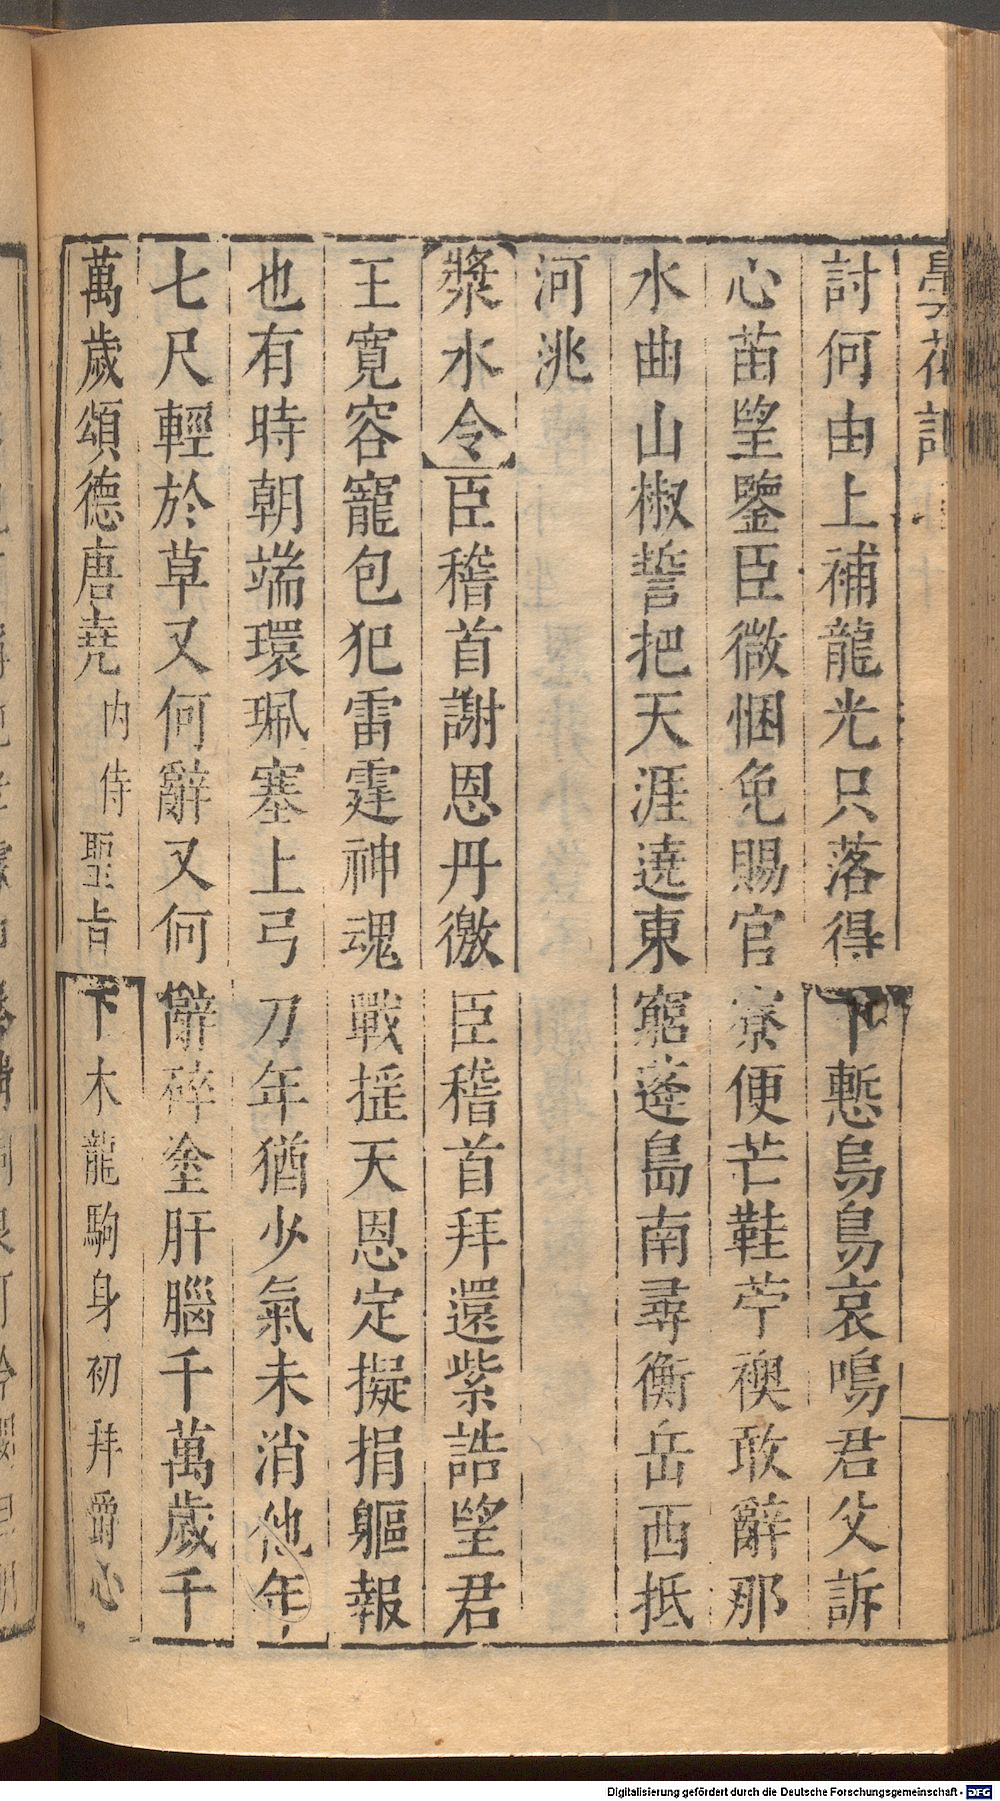 曇花記
討何由上補龍光只落得下慙烏鳥哀鳴君父訴
心苗望鑒臣微悃免賜官寮便芒鞋苧襖敢辭那
水曲山椒誓把天涯遶東窮蓬島南尋衡岳西抵
河洮
漿水令臣稽首謝恩丹徼臣稽首拜還紫誥望君
王寬容寵包犯雷霆神魂戰搖天恩定擬捐軀報
也有時朝端環珮塞上弓刀年猶少氣未消他年
七尺輕於草又何辭又何辭碎塗肝腦千萬歲千
萬歲頌德唐堯內侍聖旨下木龍駒身初拜爵心
Digitalisierung gefördert durch die Deutsche Forschungsgemeinschaft - DFG